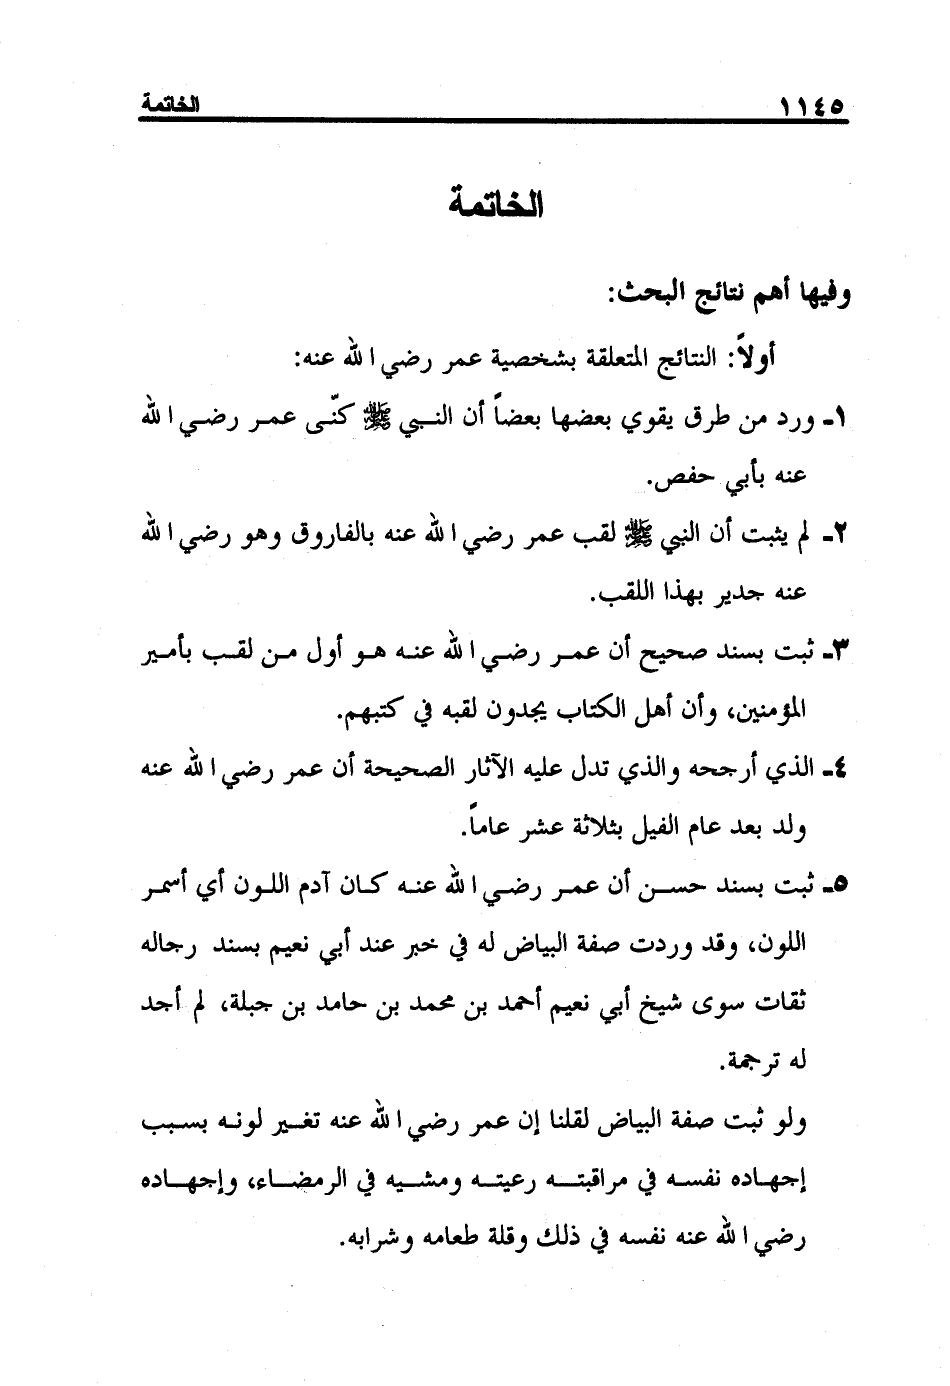 ١١٤٥ الخاتمة
الخاتمة
وفيها أهم نتائج البحث:
أولاً: النتائج المتعلقة بشخصية عمر رضي الله عنه:
١ـ ورد من طرق يقوي بعضها بعضاً أن النبي ﷺ كنّى عمر رضي الله
عنه بأبي حفص.
٢ـ لم يثبت أن النبي ﷺ لقب عمر رضي الله عنه بالفاروق وهو رضي الله
عنه جدير بهذا اللقب.
٣ـ ثبت بسند صحيح أن عمر رضي الله عنه هو أول من لقب بأمير
المؤمنين، وأن أهل الكتاب يجدون لقبه في كتبهم.
٤ـ الذي أرجحه والذي تدل عليه الآثار الصحيحة أن عمر رضي الله عنه
ولد بعد عام الفيل بثلاثة عشر عاماً.
٥ـ ثبت بسند حسن أن عمر رضي الله عنه كان آدم اللون أي أسمر
اللون، وقد وردت صفة البياض له في خبر عند أبي نعيم بسند رجاله
ثقات سوى شيخ أبي نعيم أحمد بن محمد بن حامد بن جبلة، لم أجد
له ترجمة.
ولو ثبت صفة البياض لقلنا إن عمر رضي الله عنه تغير لونه بسبب
إجهاده نفسه في مراقبته رعيته ومشيه في الرمضاء، وإجهاده
رضي الله عنه نفسه في ذلك وقلة طعامه وشرابه.